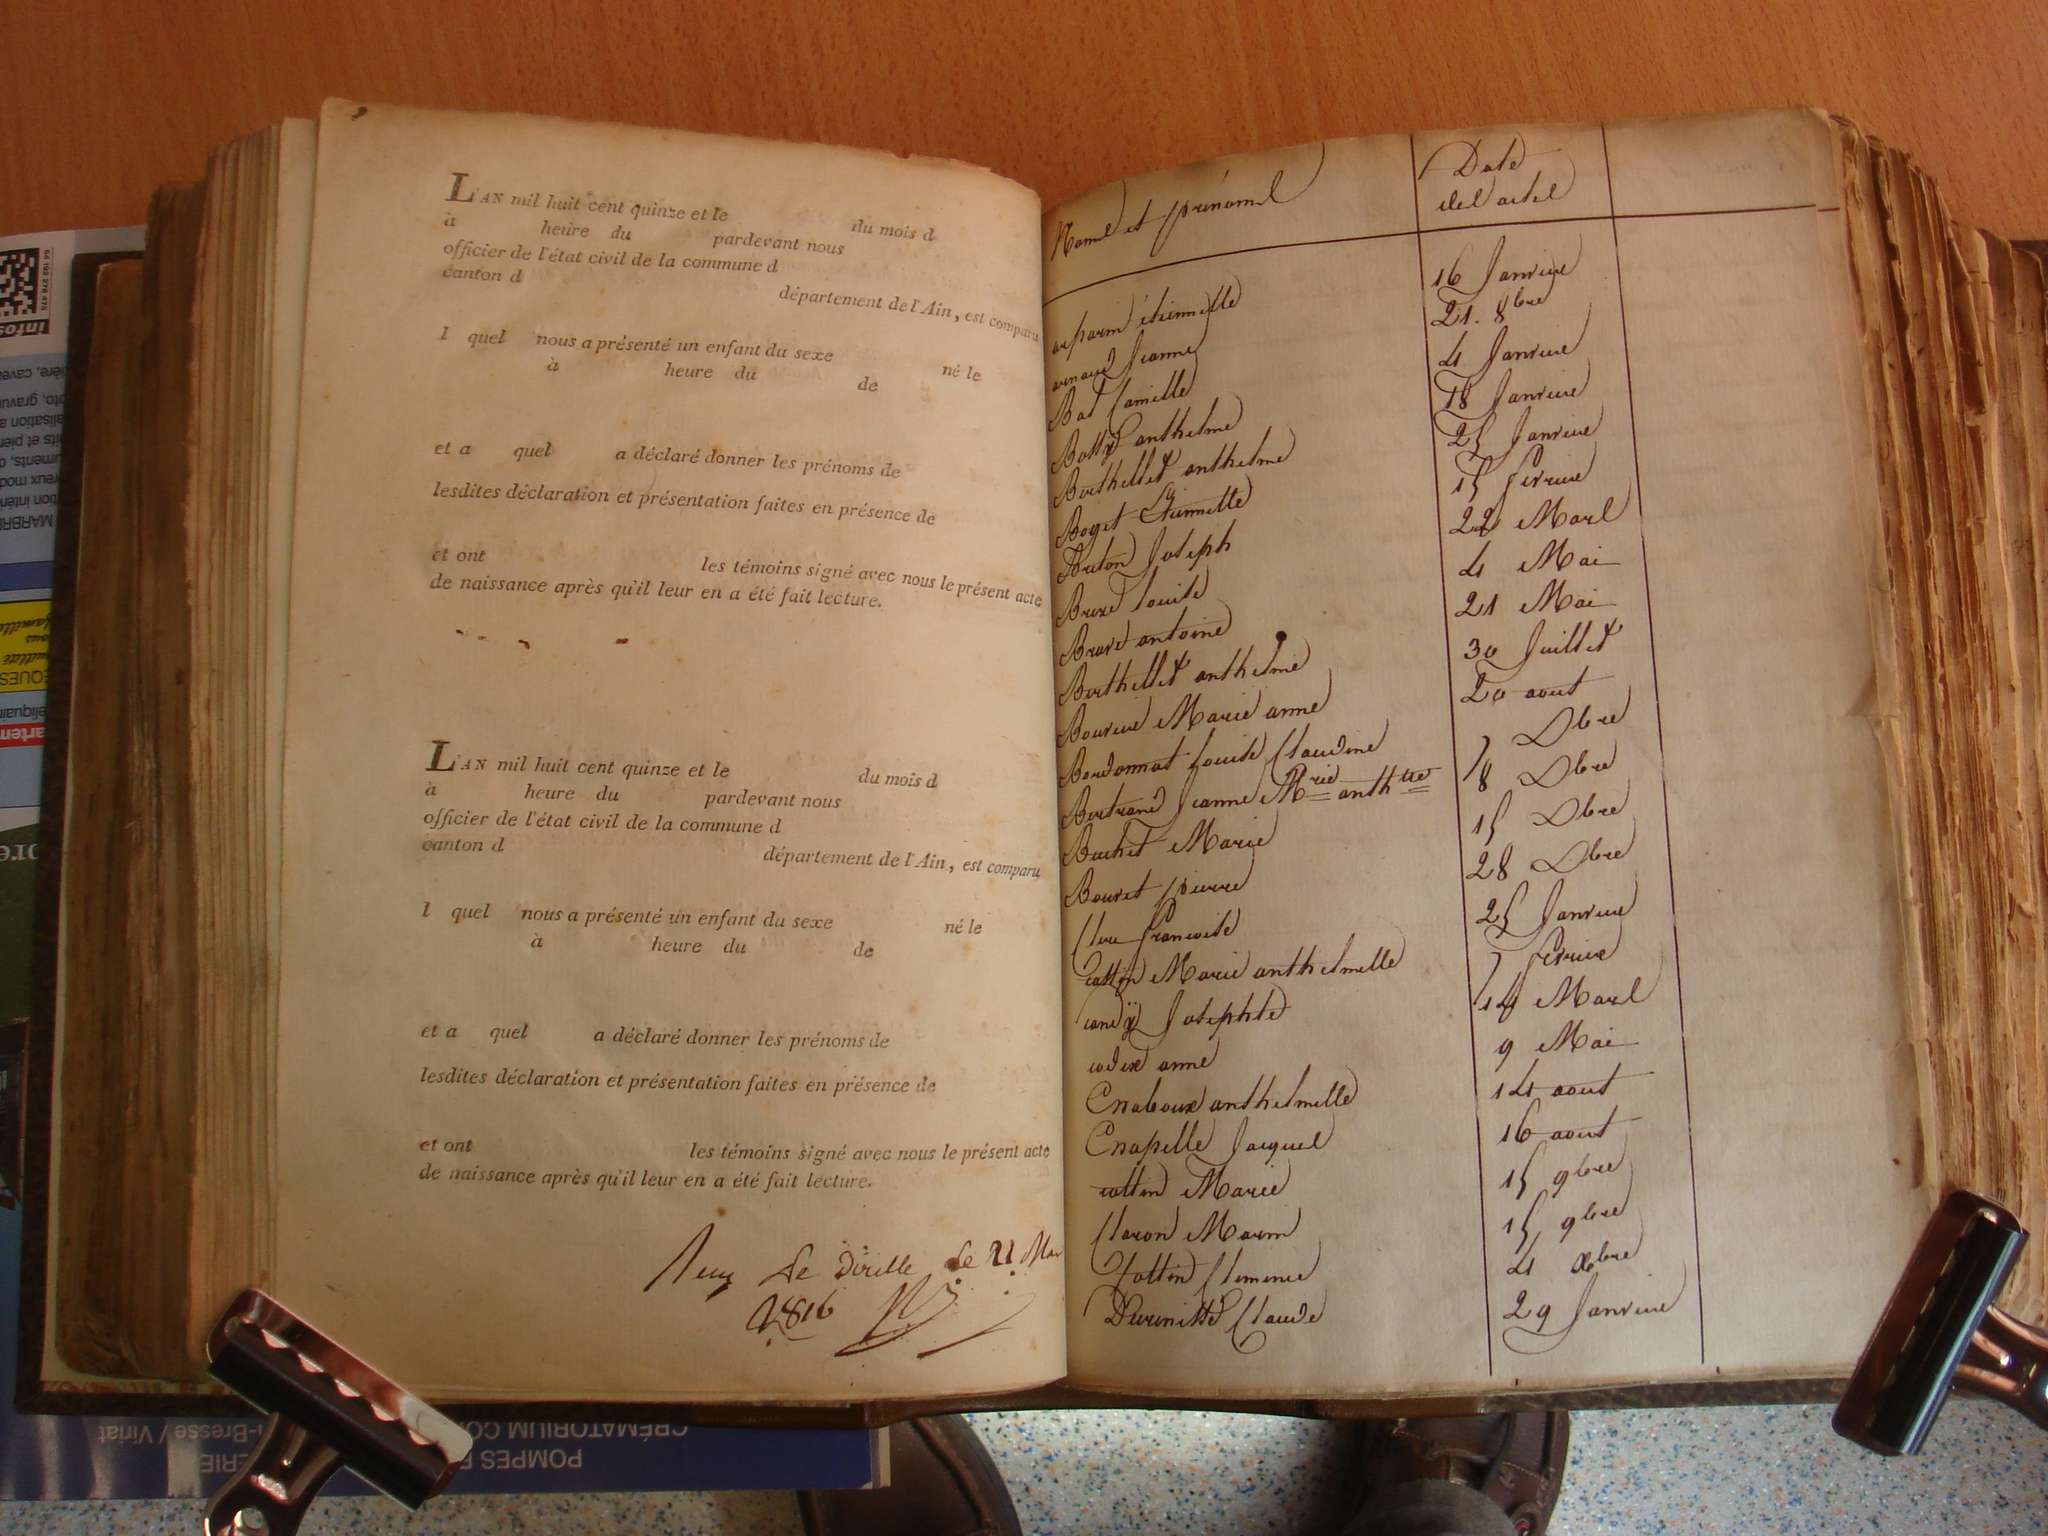 L'AN mil huit cent quinze et le du mois d
à heure du pardevant nous
officier de l'état civil de la commune d
canton d département de l'Ain, est comparu
l quel nous a présenté un enfant du sexe né le
à heure du de
et a quel a déclaré donner les prénoms de
lesdites déclaration et présentation faites en présence de
et ont les témoins signé avec nous le présent acte
de naissance après qu'il leur en a été fait lecture.
L'AN mil huit cent quinze et le du mois d
à heure du pardevant nous
officier de l'état civil de la commune d
canton d département de l'Ain, est comparu
l quel nous a présenté un enfant du sexe né le
à heure du de
et a quel a déclaré donner les prénoms de
lesdites déclaration et présentation faites en présence de
et ont les témoins signé avec nous le présent acte
de naissance après qu'il leur en a été fait lecture.
le 21 Mar
1816
Noms et prénoms Date des actes
arparin étiennette 16 Janvier
arnaud Jeanne 21. 8bre
Bal Camille 4 Janvier
anthelme 18 Janvier
Berthellet anthelme 25 Janvier
Boget Etiennette 15 fevrier
Breton Joseph 22 Mars
Louise 4 Mai
antoine 21 Mai
Berthellet anthelme 30 Juillet
Bouvier Marie anne 20 aout
Bourdonnat Louise Claudine 7 Dbre
Bertrand Jeanne Mrie anthtte 8 Dbre
Buchet Marie 15 Dbre
Bouvet pierre 28 Dbre
Clerc francoise 25 Janvier
cottin Marie anthelmette 7 fevrier
candÿ Josephte 14 Mars
anne 9 Mai
Chaboux anthelmette 14 aout
Chapelle Jacques 16 aout
cottin Marie 15 9bre
Claron Marin 15 9bre
Cottin Clemence 4 xbre
Claude 29 Janvier
POMPES
CRÉMATORIUM
-Bresse / Viriat